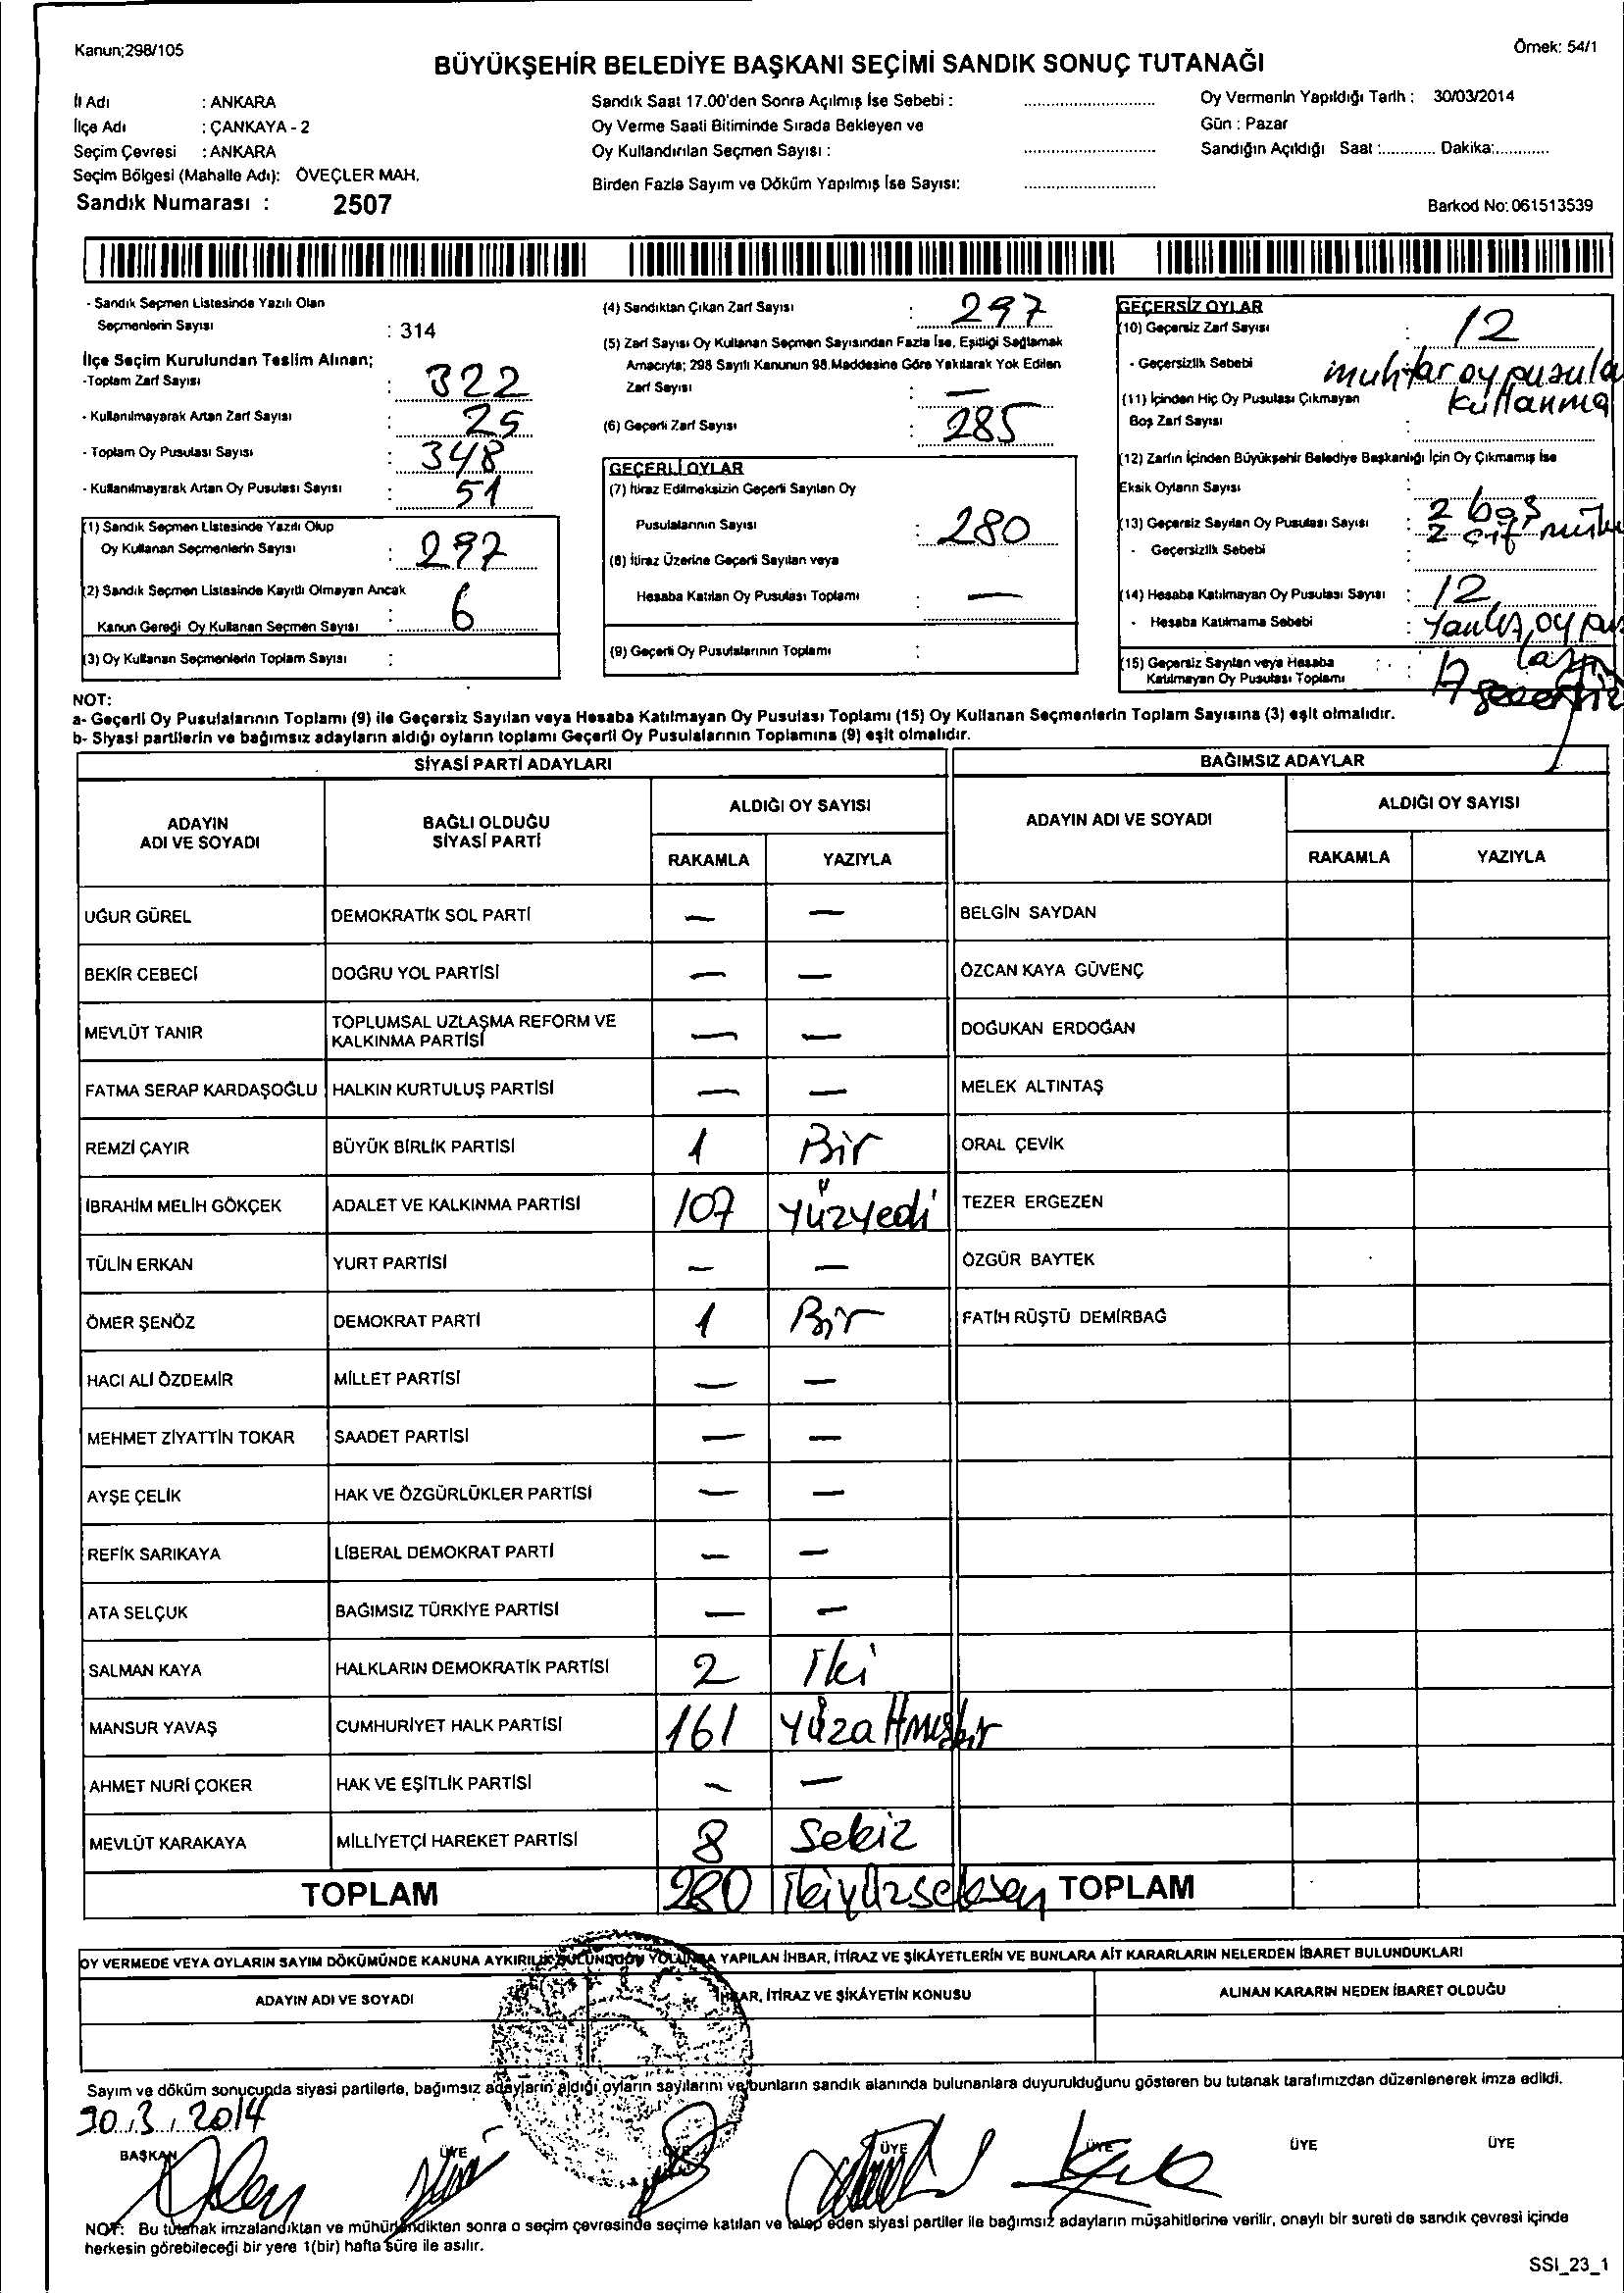 Kanun;298/105
Örnek: 54/1
BÜYÜKŞEHİR BELEDİYE BAŞKANI SEÇİMİ SANDIK SONUÇ TUTANAĞI
İl Adı : ANKARA
İlçe Adı : ÇANKAYA - 2
Seçim Çevresi : ANKARA
Seçim Bölgesi (Mahalle Adı): ÖVEÇLER MAH.
Sandık Numarası : 2507
Sandık Saat 17.00'den Sonra Açılmış İse Sebebi :
Oy Verme Saati Bitiminde Sırada Bekleyen ve
Oy Kullandırılan Seçmen Sayısı :
Birden Fazla Sayım ve Döküm Yapılmış İse Sayısı:
Oy Vermenin Yapıldığı Tarih : 30/03/2014
Gün : Pazar
Sandığın Açıldığı Saat :............ Dakika:............
Barkod No: 061513539
- Sandık Seçmen Listesinde Yazılı Olan
Seçmenlerin Sayısı : 314
İlçe Seçim Kurulundan Teslim Alınan;
-Toplam Zarf Sayısı : 322
- Kullanılmayarak Artan Zarf Sayısı : 25
- Toplam Oy Pusulası Sayısı : 348
- Kullanılmayarak Artan Oy Pusulası Sayısı : 51
(1) Sandık Seçmen Listesinde Yazılı Olup
Oy Kullanan Seçmenlerin Sayısı : 297
(2) Sandık Seçmen Listesinde Kayıtlı Olmayan Ancak
Kanun Gereği Oy Kullanan Seçmen Sayısı : 6
(3) Oy Kullanan Seçmenlerin Toplam Sayısı :
(4) Sandıktan Çıkan Zarf Sayısı : 297
(5) Zarf Sayısı Oy Kullanan Seçmen Sayısından Fazla İse, Eşitliği Sağlamak
Amacıyla; 298 Sayılı Kanunun 98.Maddesine Göre Yakılarak Yok Edilen
Zarf Sayısı : —
(6) Geçerli Zarf Sayısı : 285
GEÇERLİ OYLAR
(7) İtiraz Edilmeksizin Geçerli Sayılan Oy
Pusulalarının Sayısı : 280
(8) İtiraz Üzerine Geçerli Sayılan veya
Hesaba Katılan Oy Pusulası Toplamı : —
(9) Geçerli Oy Pusulalarının Toplamı :
GEÇERSİZ OYLAR
(10) Geçersiz Zarf Sayısı : 12
- Geçersizlik Sebebi muhtar oy pusula
kullanma
(11) İçinden Hiç Oy Pusulası Çıkmayan
Boş Zarf Sayısı :
(12) Zarfın İçinden Büyükşehir Belediye Başkanlığı İçin Oy Çıkmamış İse
Eksik Oyların Sayısı :
(13) Geçersiz Sayılan Oy Pusulası Sayısı : 2 boş
2 çift
- Geçersizlik Sebebi :
(14) Hesaba Katılmayan Oy Pusulası Sayısı : 12
- Hesaba Katılmama Sebebi : Yanlış oy
(15) Geçersiz Sayılan veya Hesaba
Katılmayan Oy Pusulası Toplamı : 17 geçersiz
NOT:
a- Geçerli Oy Pusulalarının Toplamı (9) ile Geçersiz Sayılan veya Hesaba Katılmayan Oy Pusulası Toplamı (15) Oy Kullanan Seçmenlerin Toplam Sayısına (3) eşit olmalıdır.
b- Siyasi partilerin ve bağımsız adayların aldığı oyların toplamı Geçerli Oy Pusulalarının Toplamına (9) eşit olmalıdır.
SİYASİ PARTİ ADAYLARI
BAĞIMSIZ ADAYLAR
ADAYIN
ADI VE SOYADI
BAĞLI OLDUĞU
SİYASİ PARTİ
ALDIĞI OY SAYISI
RAKAMLA YAZIYLA
ADAYIN ADI VE SOYADI
ALDIĞI OY SAYISI
RAKAMLA YAZIYLA
UĞUR GÜREL DEMOKRATİK SOL PARTİ — — BELGİN SAYDAN
BEKİR CEBECİ DOĞRU YOL PARTİSİ — — ÖZCAN KAYA GÜVENÇ
MEVLÜT TANIR TOPLUMSAL UZLAŞMA REFORM VE
KALKINMA PARTİSİ — — DOĞUKAN ERDOĞAN
FATMA SERAP KARDAŞOĞLU HALKIN KURTULUŞ PARTİSİ — — MELEK ALTINTAŞ
REMZİ ÇAYIR BÜYÜK BİRLİK PARTİSİ 1 Bir ORAL ÇEVİK
İBRAHİM MELİH GÖKÇEK ADALET VE KALKINMA PARTİSİ 107 Yüzyedi TEZER ERGEZEN
TÜLİN ERKAN YURT PARTİSİ — — ÖZGÜR BAYTEK
ÖMER ŞENÖZ DEMOKRAT PARTİ 1 Bir FATİH RÜŞTÜ DEMİRBAĞ
HACI ALİ ÖZDEMİR MİLLET PARTİSİ — —
MEHMET ZİYATTİN TOKAR SAADET PARTİSİ — —
AYŞE ÇELİK HAK VE ÖZGÜRLÜKLER PARTİSİ — —
REFİK SARIKAYA LİBERAL DEMOKRAT PARTİ — —
ATA SELÇUK BAĞIMSIZ TÜRKİYE PARTİSİ — —
SALMAN KAYA HALKLARIN DEMOKRATİK PARTİSİ 2 İki
MANSUR YAVAŞ CUMHURİYET HALK PARTİSİ 161 Yüzaltmışbir
AHMET NURİ ÇOKER HAK VE EŞİTLİK PARTİSİ — —
MEVLÜT KARAKAYA MİLLİYETÇİ HAREKET PARTİSİ 8 Sekiz
TOPLAM 280 İkiyüzseksen TOPLAM
OY VERMEDE VEYA OYLARIN SAYIM DÖKÜMÜNDE KANUNA AYKIRILIK BULUNDUĞU YOLUNDA YAPILAN İHBAR, İTİRAZ VE ŞİKÂYETLERİN VE BUNLARA AİT KARARLARIN NELERDEN İBARET BULUNDUKLARI
ADAYIN ADI VE SOYADI İHBAR, İTİRAZ VE ŞİKÂYETİN KONUSU ALINAN KARARIN NEDEN İBARET OLDUĞU
Sayım ve döküm sonucunda siyasi partilerle, bağımsız adayların aldığı oyların sayılarını ve bunların sandık alanında bulunanlara duyurulduğunu gösteren bu tutanak tarafımızdan düzenlenerek imza edildi.
30.3.2014
BAŞKAN ÜYE ÜYE ÜYE ÜYE ÜYE ÜYE
NOT: Bu tutanak imzalandıktan ve mühürlendikten sonra o seçim çevresinde seçime katılan ve talep eden siyasi partiler ile bağımsız adayların müşahitlerine verilir, onaylı bir sureti de sandık çevresi içinde
herkesin görebileceği bir yere 1(bir) hafta süre ile asılır.
SSI_23_1